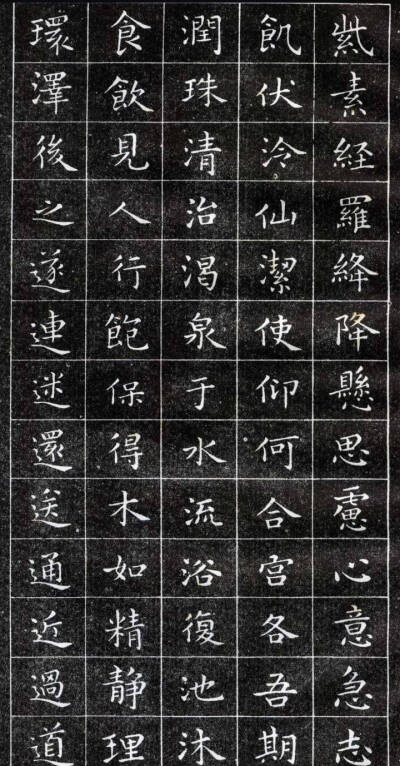 紫素経羅絳降懸思慮心意急志
飢伏泠仙潔使仰何合宮各吾期
潤珠清治渇泉于水流浴復池沐
食飲見人行飽保得木如精静理
環澤後之遂連迷還送通近過道